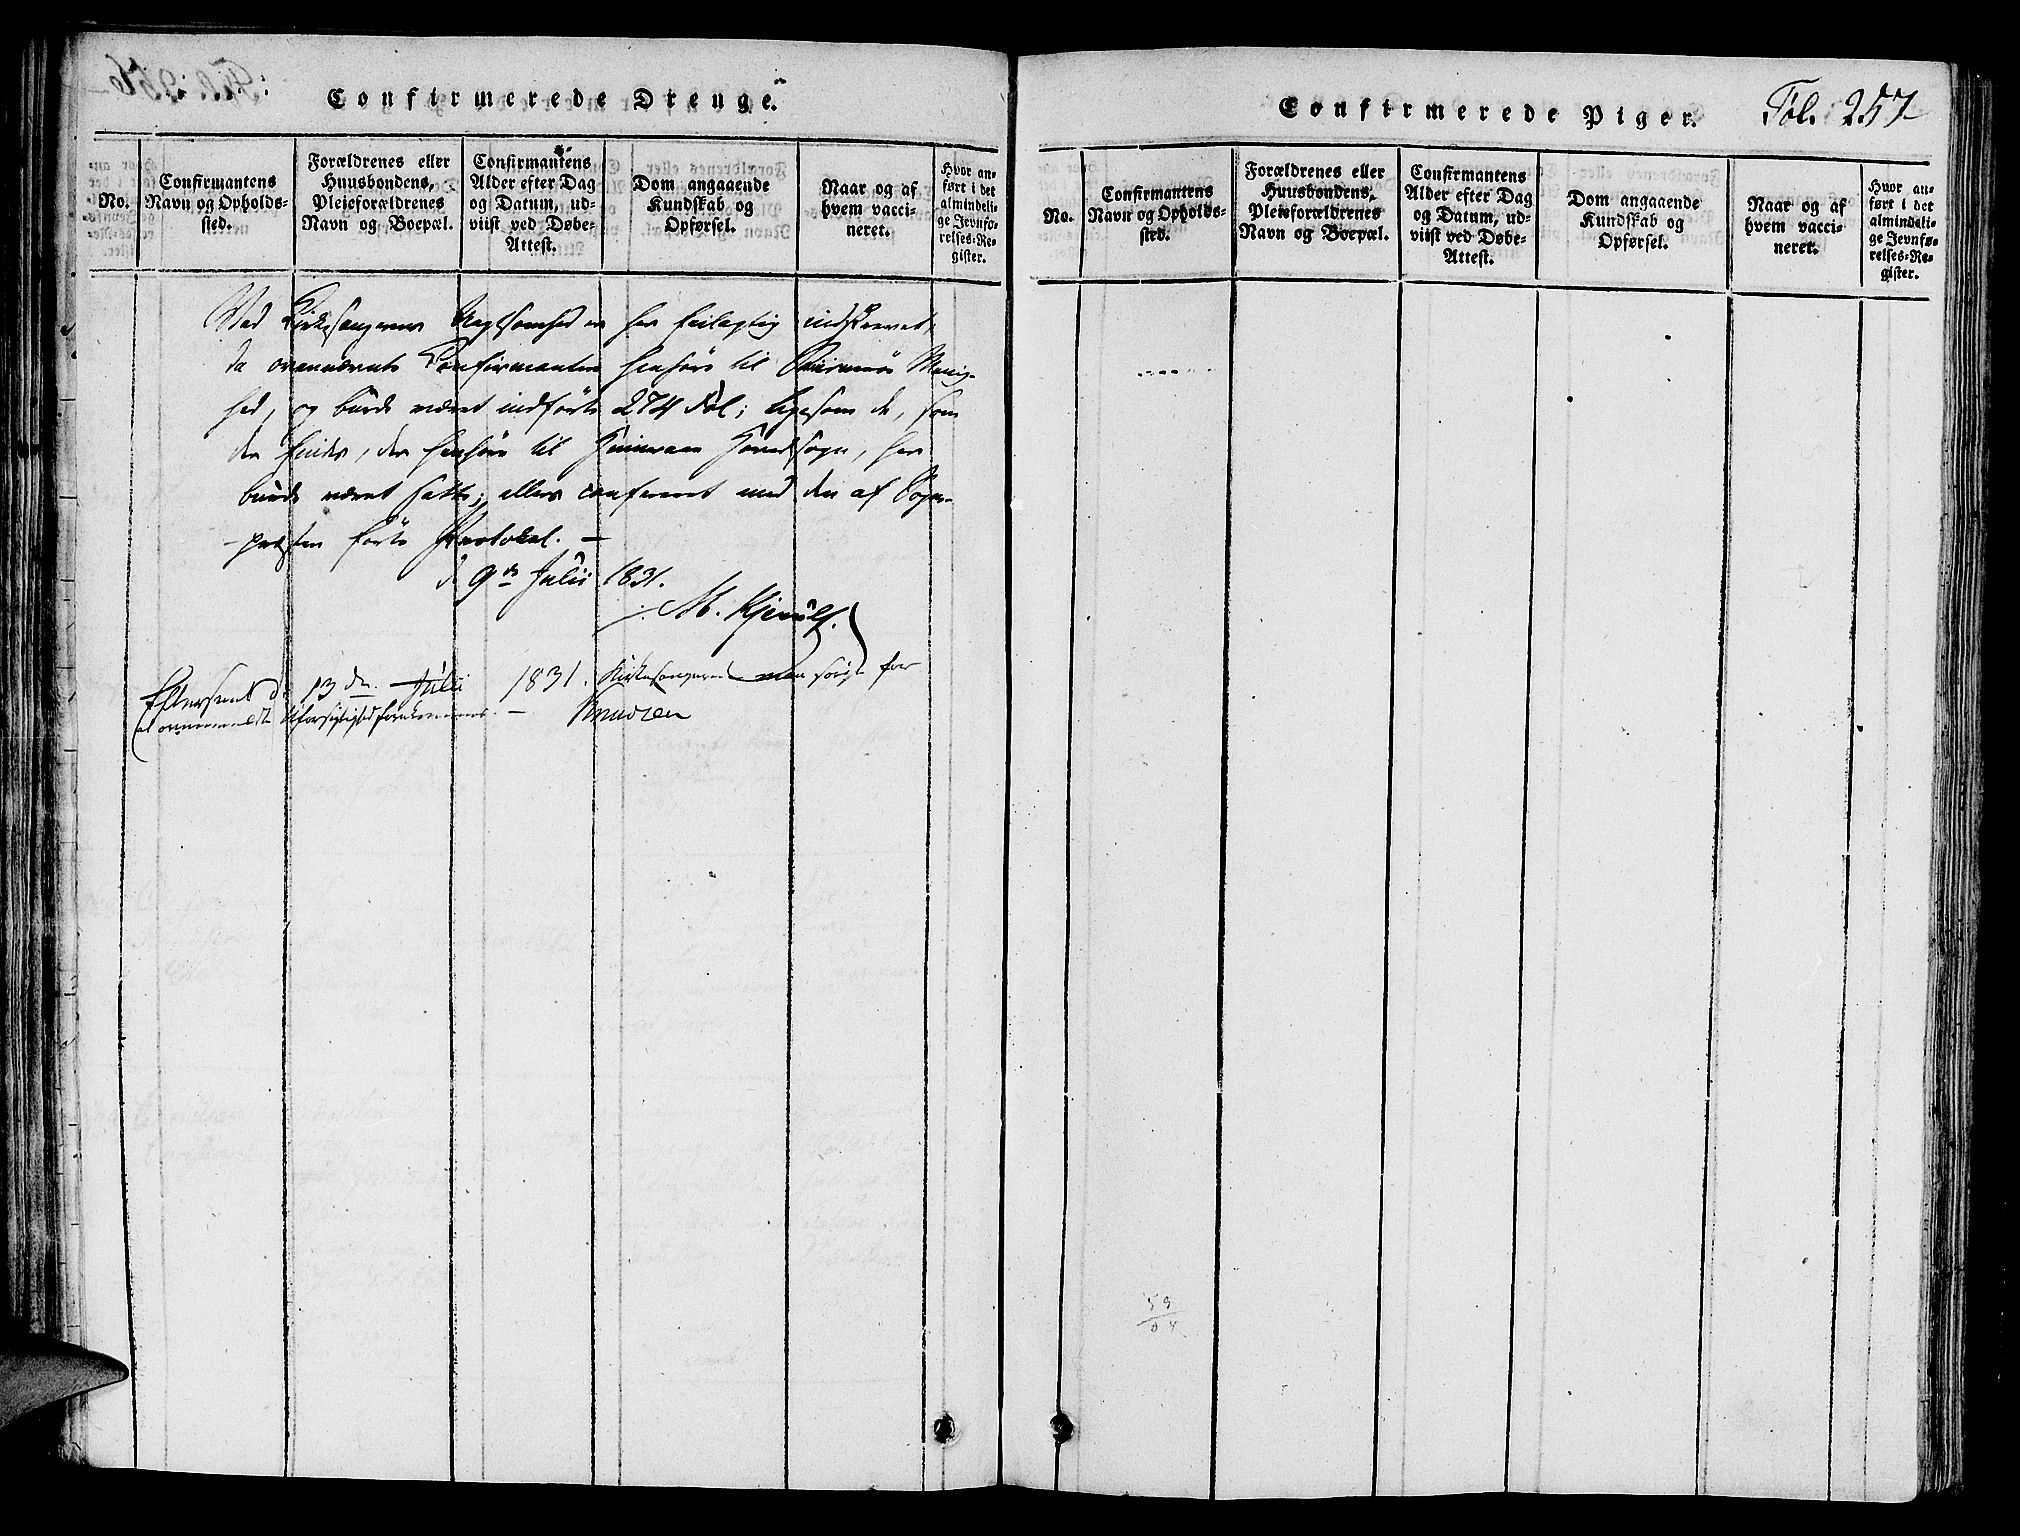 Confirmerede Drenge.
No.
Confirmantens
Navn og Opholds-
sted.
Forældrenes eller
Huusbondens,
Pleieforældrenes
Navn og Boepæl.
Confirmantens
Alder efter Dag
og Datum, ud-
viist ved Døbe-
Attest.
Dom angaaende
Kundskab og
Opførsel.
Naar og af
hvem vacci-
neret.
Hvor an-
ført i det
almindeli-
ge Jevnfø-
relses-Re-
gister.
Ved Kirkesangerens Uagtsomhed er her feilagtig indskrevet,
da ovennævnte Confirmanter henhøre til Menig-
hed, og burde været indførte 274 Fol; ligesom de, som
der findes, der henhøre til Hovedsogn, her
burde været satte; ellers confereret med den af Sogne-
præsten førte Protokol. —
d 9de Julii 1831.
M. Kjerulf.
Efterseet d. 13de Julii 1831. Kirkesangeren maa sørge for
at ovennævnte Uforsigtighed forekommes. —
Confirmerede Piger.
Fol. 257
No.
Confirmantens
Navn og Opholds-
sted.
Forældrenes eller
Huusbondens,
Pleieforældrenes
Navn og Boepæl.
Confirmantens
Alder efter Dag
og Datum, ud-
viist ved Døbe-
Attest.
Dom angaaende
Kundskab og
Opførsel.
Naar og af
hvem vacci-
neret.
Hvor an-
ført i det
almindeli-
ge Jevnfø-
relses-Re-
gister.
59
04